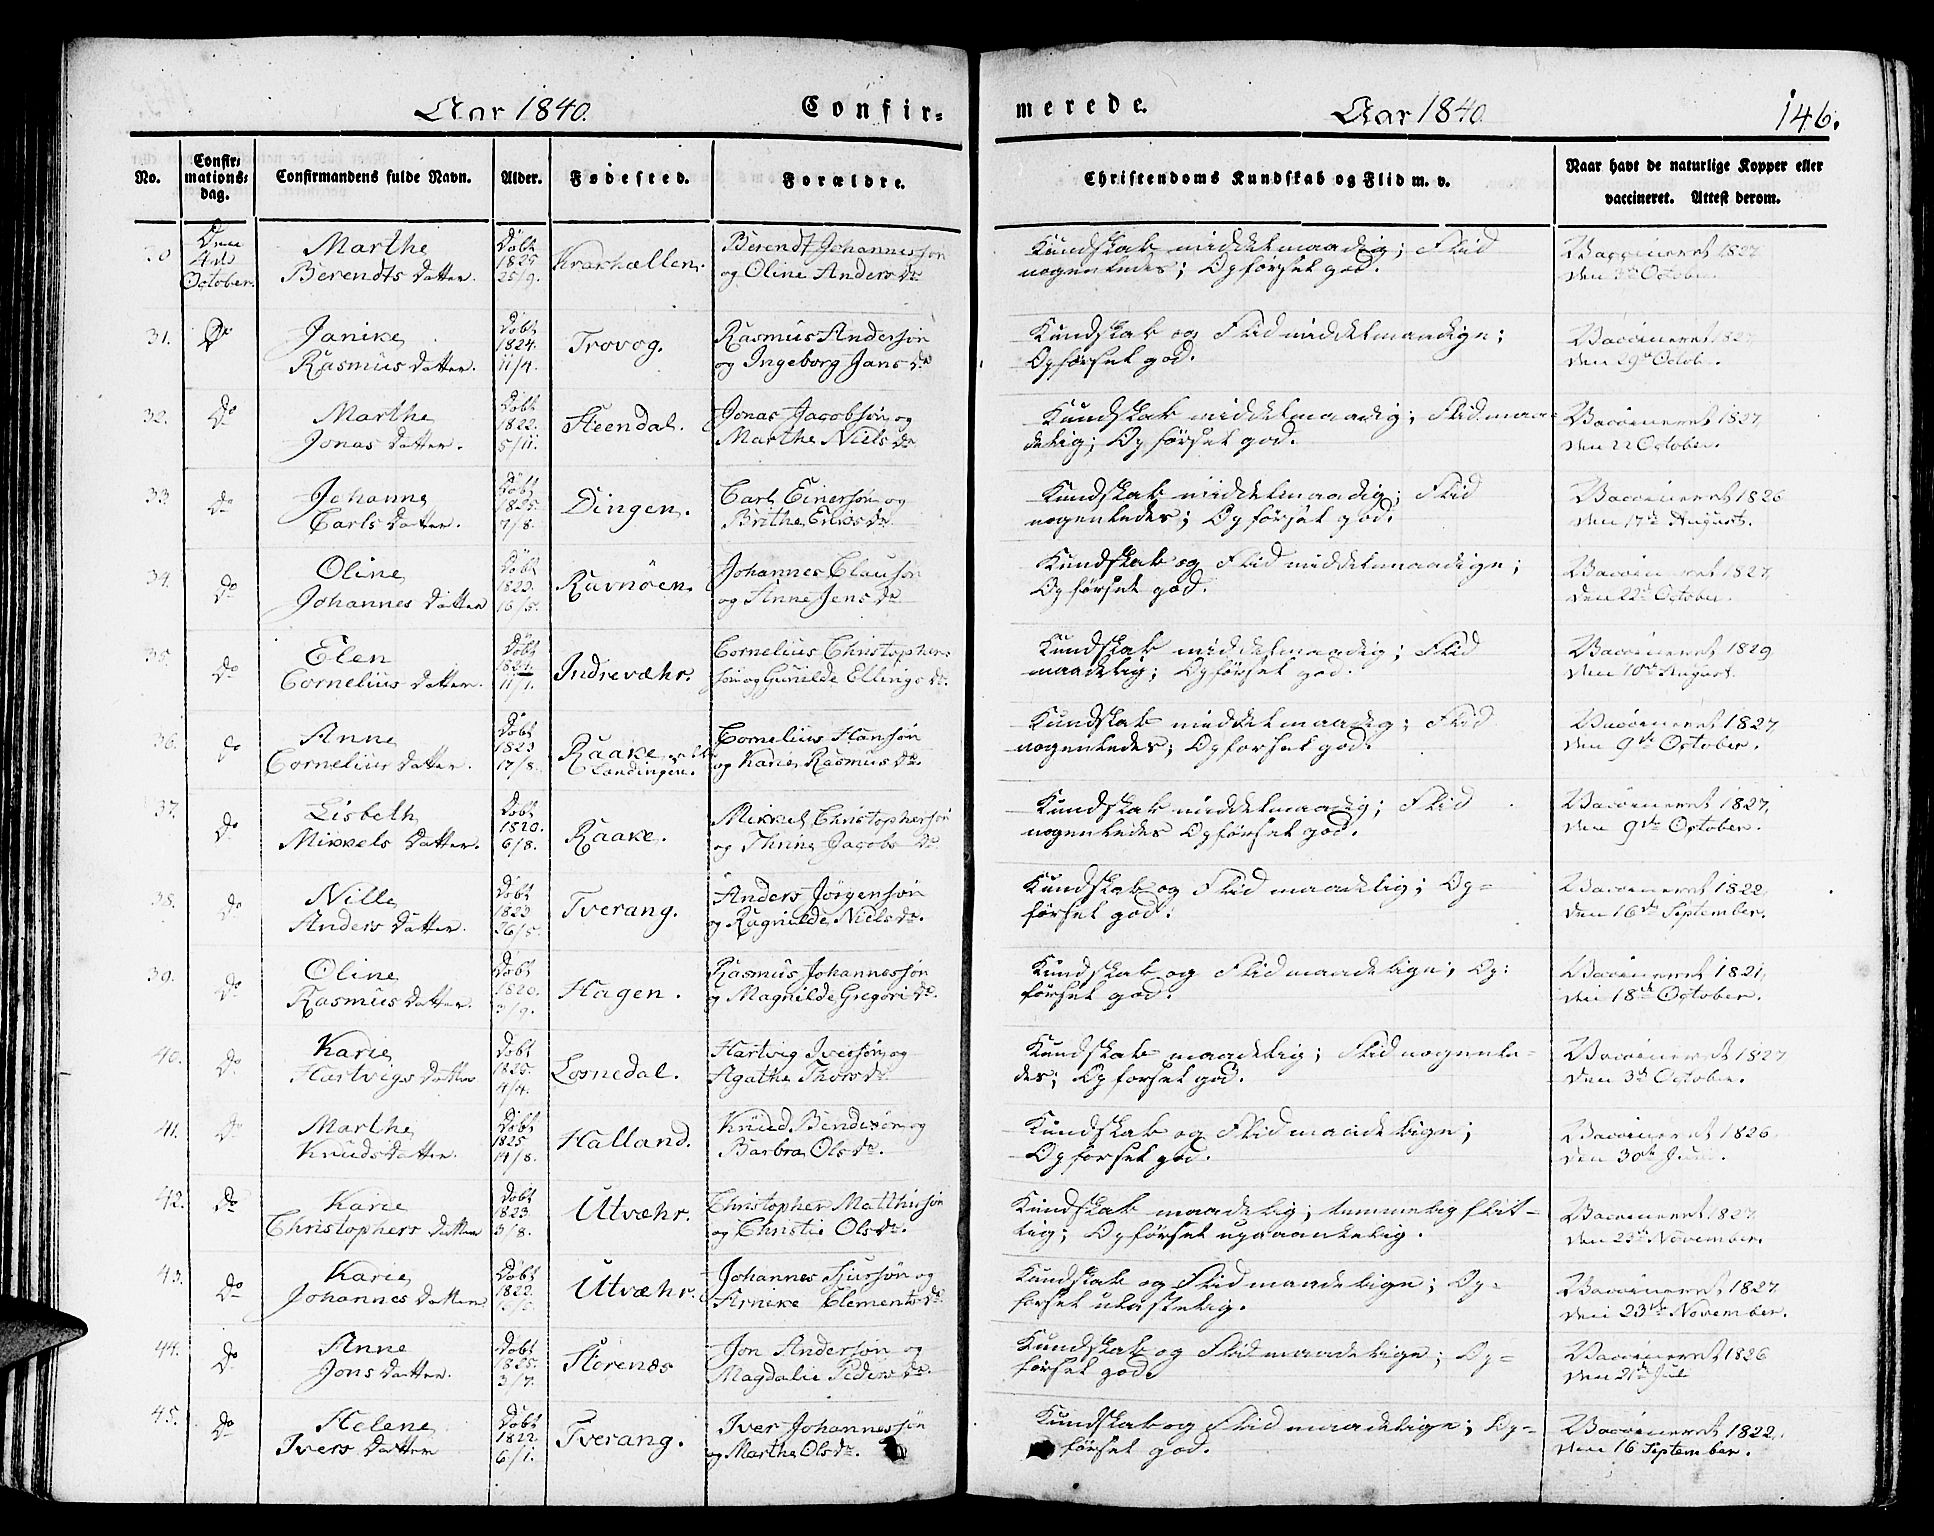 Aar 1840.
Confir-
merede.
Aar 1840
146.
No.
Confir-
mations-
dag.
Confirmandens fulde Navn.
Alder.
Fødested.
Forældre.
Christendoms Kundskab og Flid m. v.
Naar havt de naturlige Kopper eller
vaccineret. Attest derom.
30 Den 4de October. Marthe Berendts Datter. Døbt 1825 25/9. Berendt Johannessøn og Oline Anders Dr
Kundskab middelmaadig; Flid
nogenledes; Opførsel god.
Vaccineret 1827
den 3de October
31. Do Janike Rasmus Datter. Døbt 1824. 11/4. Trovog. Rasmus Andersøn og Ingeborg Jans Dr
Kundskab og Flid middelmaadige;
Opførsel god.
Vaccineret 1827
den 29de Octob.
32. Do Marthe Jonas Datter. Døbt 1822. 5/11. Steendal. Jonas Jacobsøn og Marthe Niels Dr
Kundskab middelmaadig; Flid maa-
delig; Opførsel god.
Vaccineret 1827,
den 22 October.
33. Do Johanne Carls Datter. Døbt 1825. 7/8. Dingen. Carl Einersøn og Brithe Eriks Dr
Kundskab middelmaadig; Flid
nogenledes; Opførsel god.
Vaccineret 1826
den 17de August.
34. Do Oline Johannes Datter Døbt 1823. 16/5. Ravnøen. Johannes Clausøn og Anne Jens Dr
Kundskab og Flid middelmaadige;
Opførsel god.
Vaccineret 1827,
den 22de October
35. Do Elen Cornelius Datter. Døbt 11/1. Indrevæhr. Cornelius Christophers søn og Gunilde Ellings Dr.
Kundskab middelmaadig; Flid
maadelig; Opførsel god.
Vaccineret 1829
den 10de August.
36. Do Anne Cornelius Datter. Døbt 1823 17/8. Raake Cornelius Hansøn og Karie Rasmus Dr.
Kundskab middelmaadig; Flid
nogenledes; Opførsel god.
Vaccineret 1827
den 9de October.
37. Do Lisbeth Mikkels Datter. Døbt 1820. 6/8. Raake. Mikkel Christophersøn og Thrine Jacobs Dr.
Kundskab middelmaadig; Flid
nogenledes Opførsel god.
Vaccineret 1827,
den 9de October.
38. Do Nille Anders Datter. Døbt 1823 26/5. Tverang. Anders Jørgensøn og Ragnilde Niels Dr.
Kundskab og Flid maadelig; Op-
førsel god.
Vaccineret 1822,
den 16de September.
39. Do Oline Rasmus Datter. Døbt 1820. 3/9. Hagen. Rasmus Johannessøn og Magnilde Gregori Dr.
Kundskab og Flid maadelige; Op:
førsel god.
Vaccineret 1821,
den 18de October.
40. Do Karie Hartvigs Datter Døbt 1825. 4/4. Losnedal. Hartvig Iversøn og Agathe Thors Dr.
Kundskab maadelig; Flid nogenle-
des; Opførsel god.
Vaccineret 1827
den 3de October.
41. Do Marthe Knuds Datter. Døbt 1825 14/8. Halland. Knud Bendixøn og Barbra Ols Dr.
Kundskab og Flid maadelige;
Opførsel god.
Vaccineret 1826
den 30te
42. Do Karie Christophers Datter Døbt 1823. 3/8. Utvæhr. Christopher Matthissøn og Christi Ols Dr.
Kundskab maadelig; temmelig flit-
tig; Opførsel upaaankelig.
Vaccineret 1827,
den 23de November.
43. Do Karie Johannes Datter Døbt 1822. Utvæhr. Johannes Sjursøn og Arnike Clements Dr.
Kundskab og Flid maadelige; Op-
førsel ulastelig.
Vaccineret 1827
den 23de November.
44. Do Anne Jons Datter. Døbt 1825. 3/7. Storenæs Jon Andersøn og Magdalie Peders Dr.
Kundskab og Flid maadelige; Op-
førsel god.
Vaccineret 1826
den 21de Jul
45. Do Helene Ivers Datter Døbt 1822 6/1. Tverang. Iver Johannessøn og Marthe Ols Dr.
Kundskab og Flid maadelige; Op-
førsel god.
Vaccineret 1822,
den 16 September.